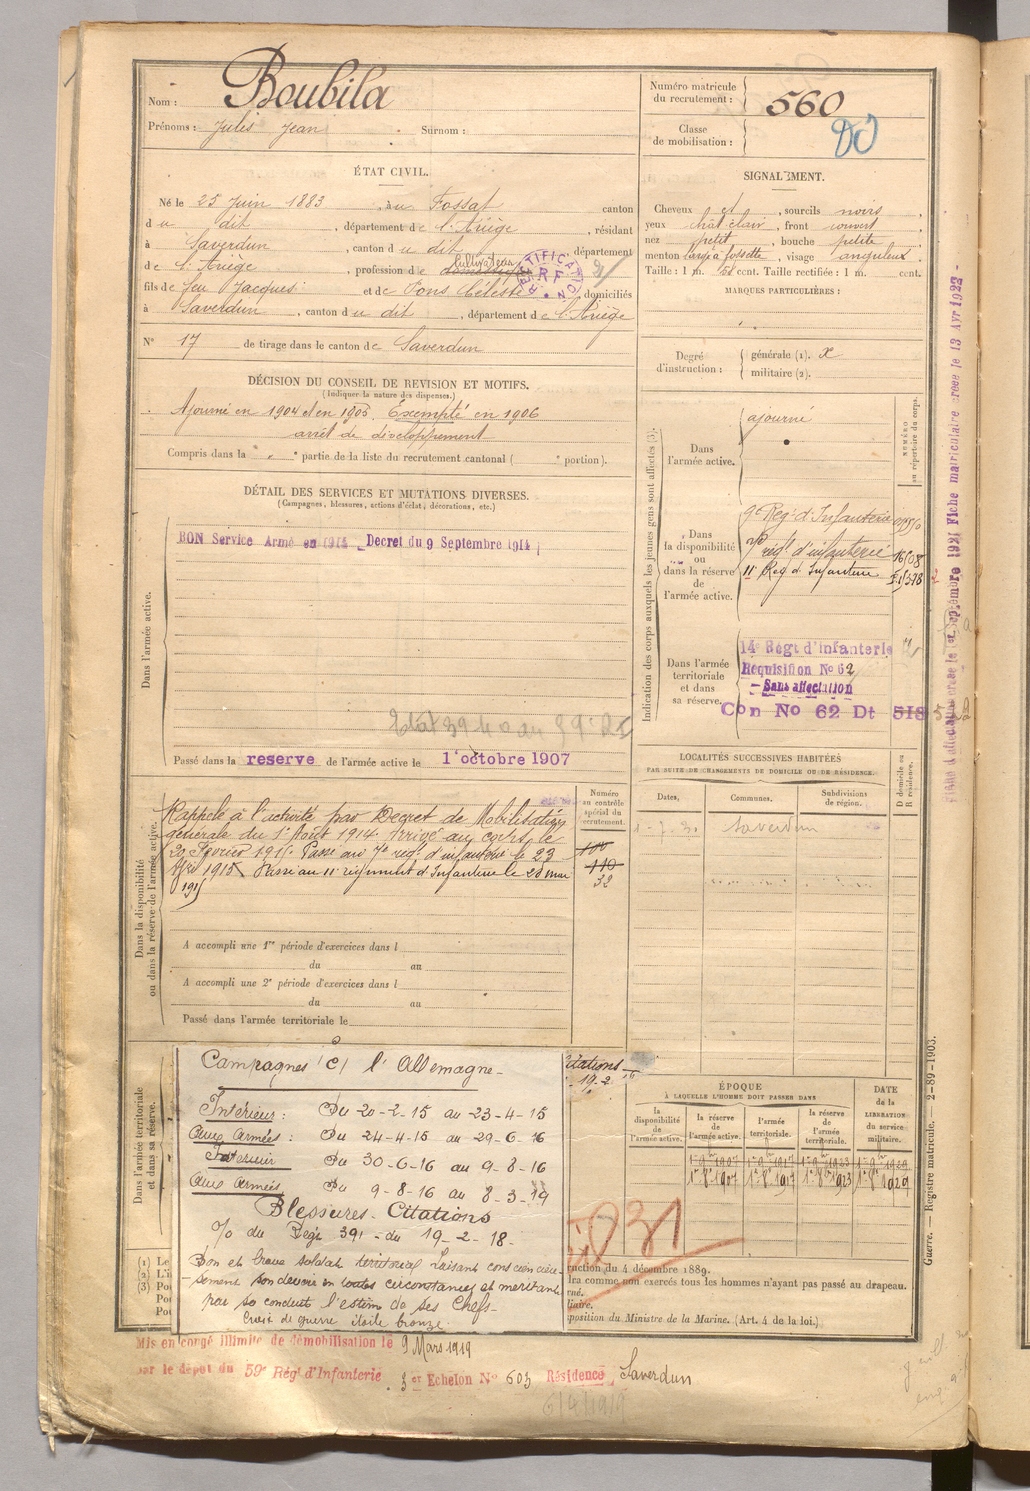 Nom : Boubila
Prénoms : Jules Jean Surnom :
Numéro matricule du recrutement : 560
Classe de mobilisation :
ÉTAT CIVIL.
Né le 25 Juin 1883, à au Fossat canton
d u dit, département de l'Ariège, résidant
à Saverdun, canton d u dit, département
de l'Ariège, profession de domestique cultivateur
RECTIFICATION RF
fils de feu Jacques et de Pons Céleste, domiciliés
à Saverdun, canton d u dit, département de l'Ariège
N° 17 de tirage dans le canton de Saverdun
SIGNALEMENT.
Cheveux et, sourcils noirs,
yeux chât clair, front couvert
nez petit, bouche petite,
menton large à fossette, visage anguleux.
Taille : 1 m. cent. Taille rectifiée : 1 m. cent.
MARQUES PARTICULIÈRES :
Degré d'instruction : générale (1). x
militaire (2).
DÉCISION DU CONSEIL DE REVISION ET MOTIFS.
(Indiquer la nature des dispenses.)
Ajourné en 1904 et en 1905. Exempté en 1906
arrêt de développement
Compris dans la " " partie de la liste du recrutement cantonal ( " portion).
DÉTAIL DES SERVICES ET MUTATIONS DIVERSES.
(Campagnes, blessures, actions d'éclat, décorations, etc.)
Dans l'armée active.
BON Service Armé en 1914 Decret du 9 Septembre 1914
Passé dans la reserve de l'armée active le 1 octobre 1907
Indication des corps auxquels les jeunes gens sont affectés (3).
NUMÉRO au répertoire du corps.
Dans l'armée active. ajourné
Dans la disponibilité ou dans la réserve de l'armée active.
9e Reg. d'Infanterie
7e régt d'infanterie 16/08
11 Reg d'Infanterie
Dans l'armée territoriale et dans sa réserve.
14e Régt d'Infanterie
Réquisition No 62
Sans affectation
Con No 62 Dt 515
LOCALITÉS SUCCESSIVES HABITÉES
PAR SUITE DE CHANGEMENTS DE DOMICILE OU DE RÉSIDENCE.
Dates. Communes. Subdivisions de région. D domicile ou R résidence.
Saverdun
Dans la disponibilité ou dans la réserve de l'armée active.
Numéro au contrôle spécial du recrutement.
Rappelé à l'activité par Decret de Mobilisation
générale du 1er Août 1914. Arrivé au corps le
20 Février 1915. Passé au 7e régt d'infanterie le 23
Avril 1915. Passé au 11 régiment d'Infanterie le 20 mai
1915
100
110
32
A accompli une 1re période d'exercices dans l
du au
A accompli une 2e période d'exercices dans l
du au
Passé dans l'armée territoriale le
Dans l'armée territoriale et dans sa réserve.
Campagnes c/ l'Allemagne
Intérieur : Du 20-2-15 au 23-4-15
Aux armées : Du 24-4-15 au 29-6-16
Interieur Du 30-6-16 au 9-8-16
Aux armées Du 9-8-16 au 8-3-19
Blessures - Citations
O/ du Régt 391 du 19-2-18-
Bon et brave soldat territorial faisant conscencieu-
-sement son devoir en toutes circonstances et méritant
par sa conduite l'estime de ses Chefs-
Croix de guerre étoile bronze.
Citations
19-2
ÉPOQUE
À LAQUELLE L'HOMME DOIT PASSER DANS
la disponibilité de l'armée active. la réserve de l'armée active. l'armée territoriale. la réserve de l'armée territoriale. DATE de la LIBÉRATION du service militaire.
1907 1917 1923 1929
1907 1917 1923 1929
ruction du 4 décembre 1889.
lra comme non exercés tous les hommes n'ayant pas passé au drapeau.
position du Ministre de la Marine. (Art. 4 de la loi.)
Mis en congé illimité de démobilisation le 9 Mars 1919
par le dépôt du 59e Régt d'Infanterie 3er Echelon N° 603 Résidence Saverdun
6/4/1919
Fiche matriculaire créée le 13 Avr 1923
Guerre. — Registre matricule. — 2-89-1903.